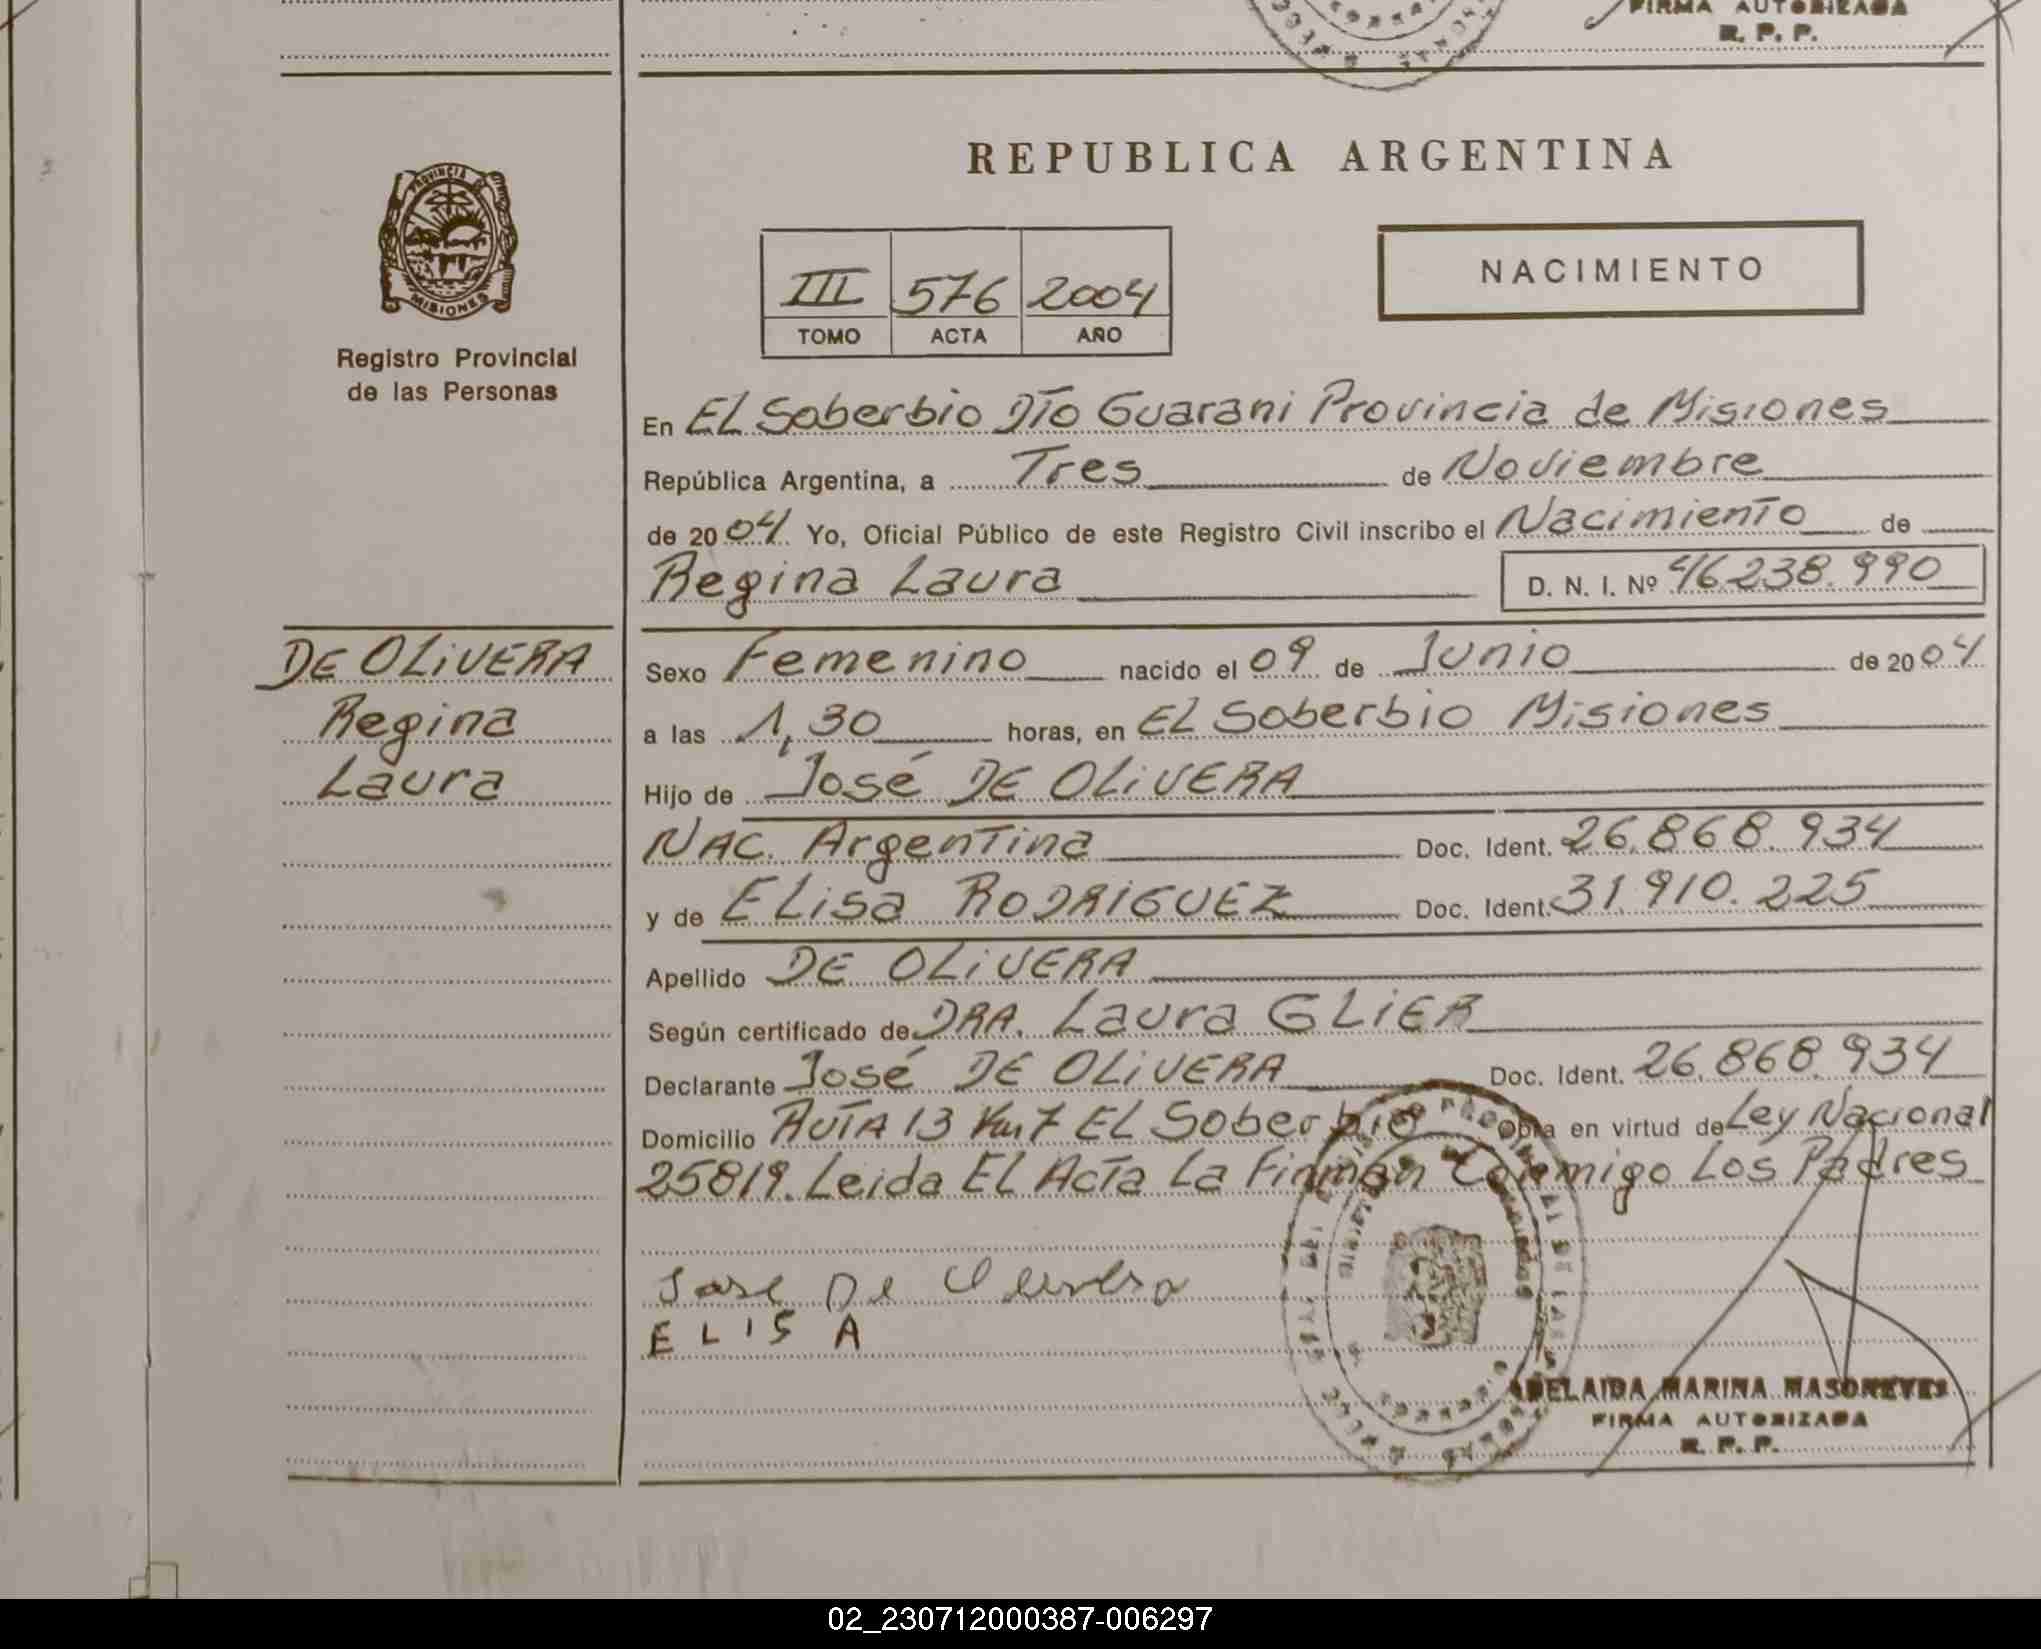 FIRMA AUTORIZADA
R. P. P.
REPUBLICA ARGENTINA
PROVINCIA DE
MISIONES
Registro Provincial
de las Personas
III 576 2004
TOMO ACTA AÑO
NACIMIENTO
En EL Soberbio DTO Guarani Provincia de Misiones
República Argentina, a Tres de Noviembre
de 2004 Yo, Oficial Público de este Registro Civil inscribo el Nacimiento de
Regina Laura D. N. I. Nº 46.238.990
DE OLiVERA
Regina
Laura
Sexo Femenino nacido el 09 de Junio de 2004
a las 1,30 horas, en EL Soberbio Misiones
Hijo de José DE OLiVERA
NAC. Argentina Doc. Ident. 26.868.934
y de ELisa RODRIGUEZ Doc. Ident. 31.910.225
Apellido DE OLiVERA
Según certificado de DRA. Laura GLiER
Declarante José DE OLiVERA Doc. Ident. 26.868.934
Domicilio RUTA 13 Km 7 EL Soberbio Obra en virtud de Ley Nacional
25819. Leida EL Acta La Firman Conmigo Los Padres
Jose De
ELISA
ADELAIDA MARINA MASONEVES
FIRMA AUTORIZADA
R. P. P.
02_230712000387-006297